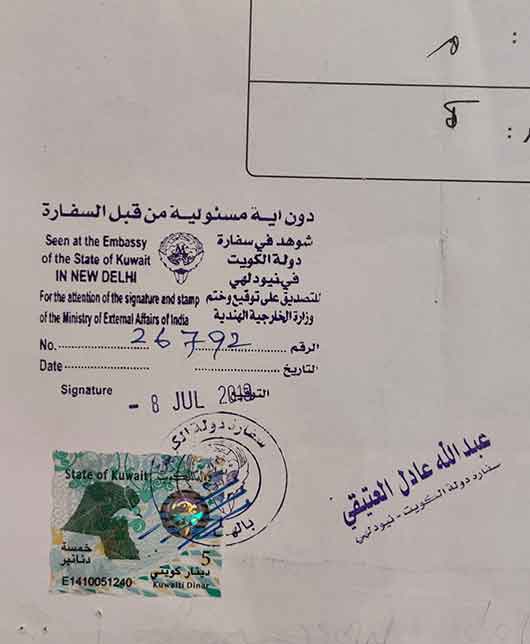 دون اية مسئولية من قبل السفارة
Seen at the Embassy
of the State of Kuwait
IN NEW DELHI
شوهد في سفارة
دولة الكويت
في نيودلهي
For the attention of the signature and stamp
of the Ministry of External Affairs of India
للتصديق على توقيع وختم
وزارة الخارجية الهندية
No. 26792 الرقم
Date التاريخ
Signature
- 8 JUL
سفارة دولة
State of Kuwait
خمسة
دنانير
5
دينار كويتي
Kuwaiti Dinar
E1410051240
عبد الله عادل العتيقي
سفارة دولة الكويت - نيودلهي